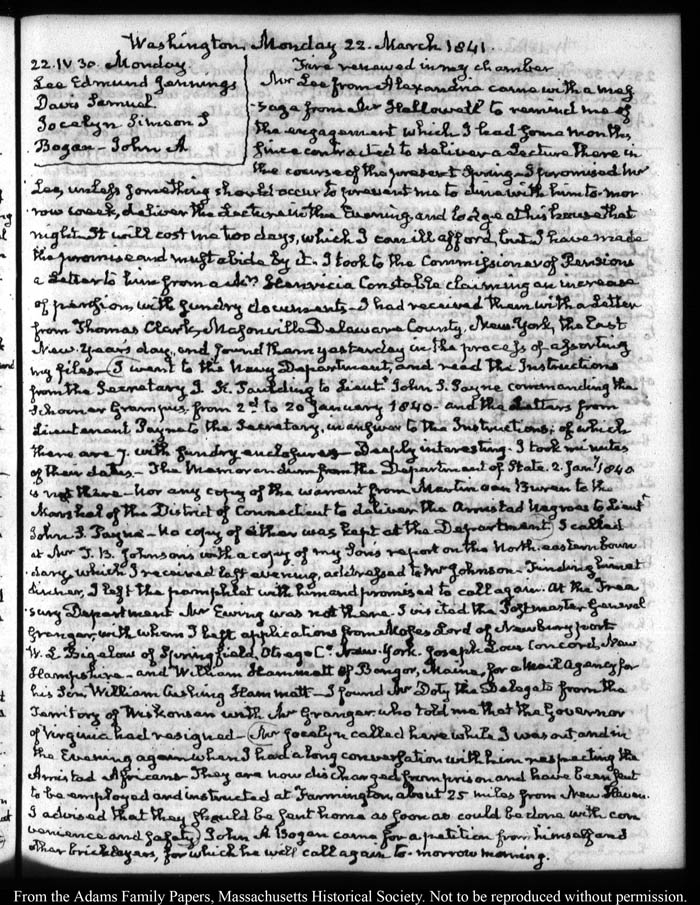 Washington, Monday 22. March 1841.
22. IV 30. Monday
Lee Edmund Jennings
Davis Samuel
Jocelyn Simeon S
Bogan - John A
Fire renewed in my chamber
Mr Lee from Alexandria came with a mes
-sage from Mr Hallowell to remind me of
the engagement which I had some months
since contracted to deliver a Lecture there in
the course of the present Spring. I promised Mr
Lee, unless something should occur to prevent me to dine with him to-mor
row week, deliver the Lecture in the Evening, and lodge at his house that
night. It will cost me two days, which I can ill afford, but I have made
the promise and must abide by it. I took to the Commissioner of Pensions
a Letter to him from a Mrs Constable claiming an increase
of pension, with sundry documents - I had received them with a Letter
from Thomas Clark, Masonville Delaware County, New-York, the last
New-Years day, and found them yesterday in the process of assorting
my files - I went to the Navy Department, and read the Instructions
from the Secretary J. K. Paulding to Lieutt John S. Payne commanding the
Schooner Grampus, from 2d to 20 January 1840 - and the Letters from
Lieutenant Payne to the Secretary, in answer to the Instructions; of which
there are 7. with sundry enclosures - Deeply interesting. I took minutes
of their dates - The Memorandum from the Department of State 2. Jany 1840
is not there - Nor any copy of the warrant from Martin van Buren to the
Marshal of the District of Connecticut to deliver the Amistad Negroes to Lieutt
John S. Payne - No copy of either was kept at the Department. I called
at Mr J. B. Johnson's with a copy of my Son's report on the North-eastern boun
-dary, which I received last evening, addressed to Mr Johnson - Finding him at
dinner, I left the pamphlet with him and promised to call again. At the Trea
sury Department Mr Ewing was not there. I visited the Postmaster General
Granger, with whom I left applications from Moses Lord of Newburyport
W. L. Bigelow of Springfield, Otsego Cy. New-York. Joseph Low Concord, New
Hampshire - and William Hammatt of Bangor, Maine, for a Mail Agency for
his Son, William Cushing Hammatt - I found Mr Doty the Delegate from the
Territory of Wiskonsan with Mr Granger, who told me that the Governor
of Virginia had resigned - Mr Jocelyn called here while I was out and in
the Evening again when I had a long conversation with him respecting the
Amistad Africans - They are now discharged from prison and have been sent
to be employed and instructed at Farmington, about 25 miles from New Haven.
I advised that they should be sent home as soon as could be done with con
venience and safety. John A. Bogan came for a petition from himself and
other bricklayers, for which he will call again to-morrow morning.
From the Adams Family Papers, Massachusetts Historical Society. Not to be reproduced without permission.